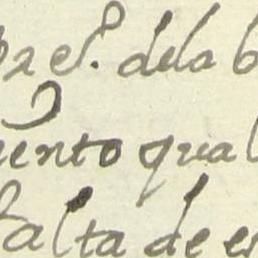 el. dela
ento qual
falta de es